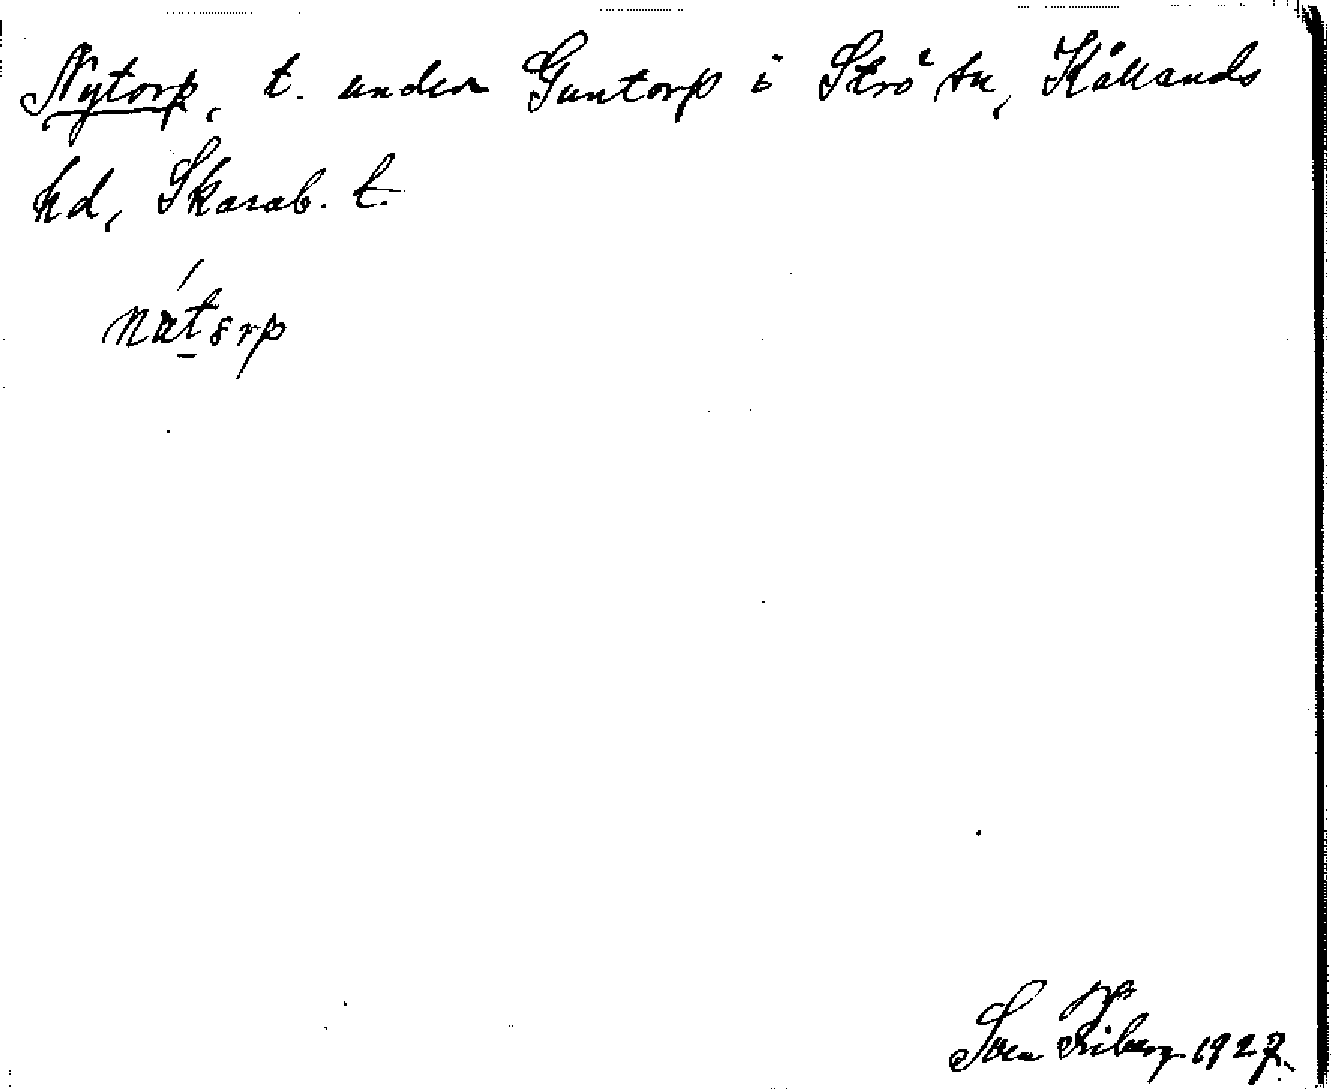 Nytorp, t. under Guntorp i Strö sn, Kållands
hd, Skarab. l.
Sven Friberg 1927.